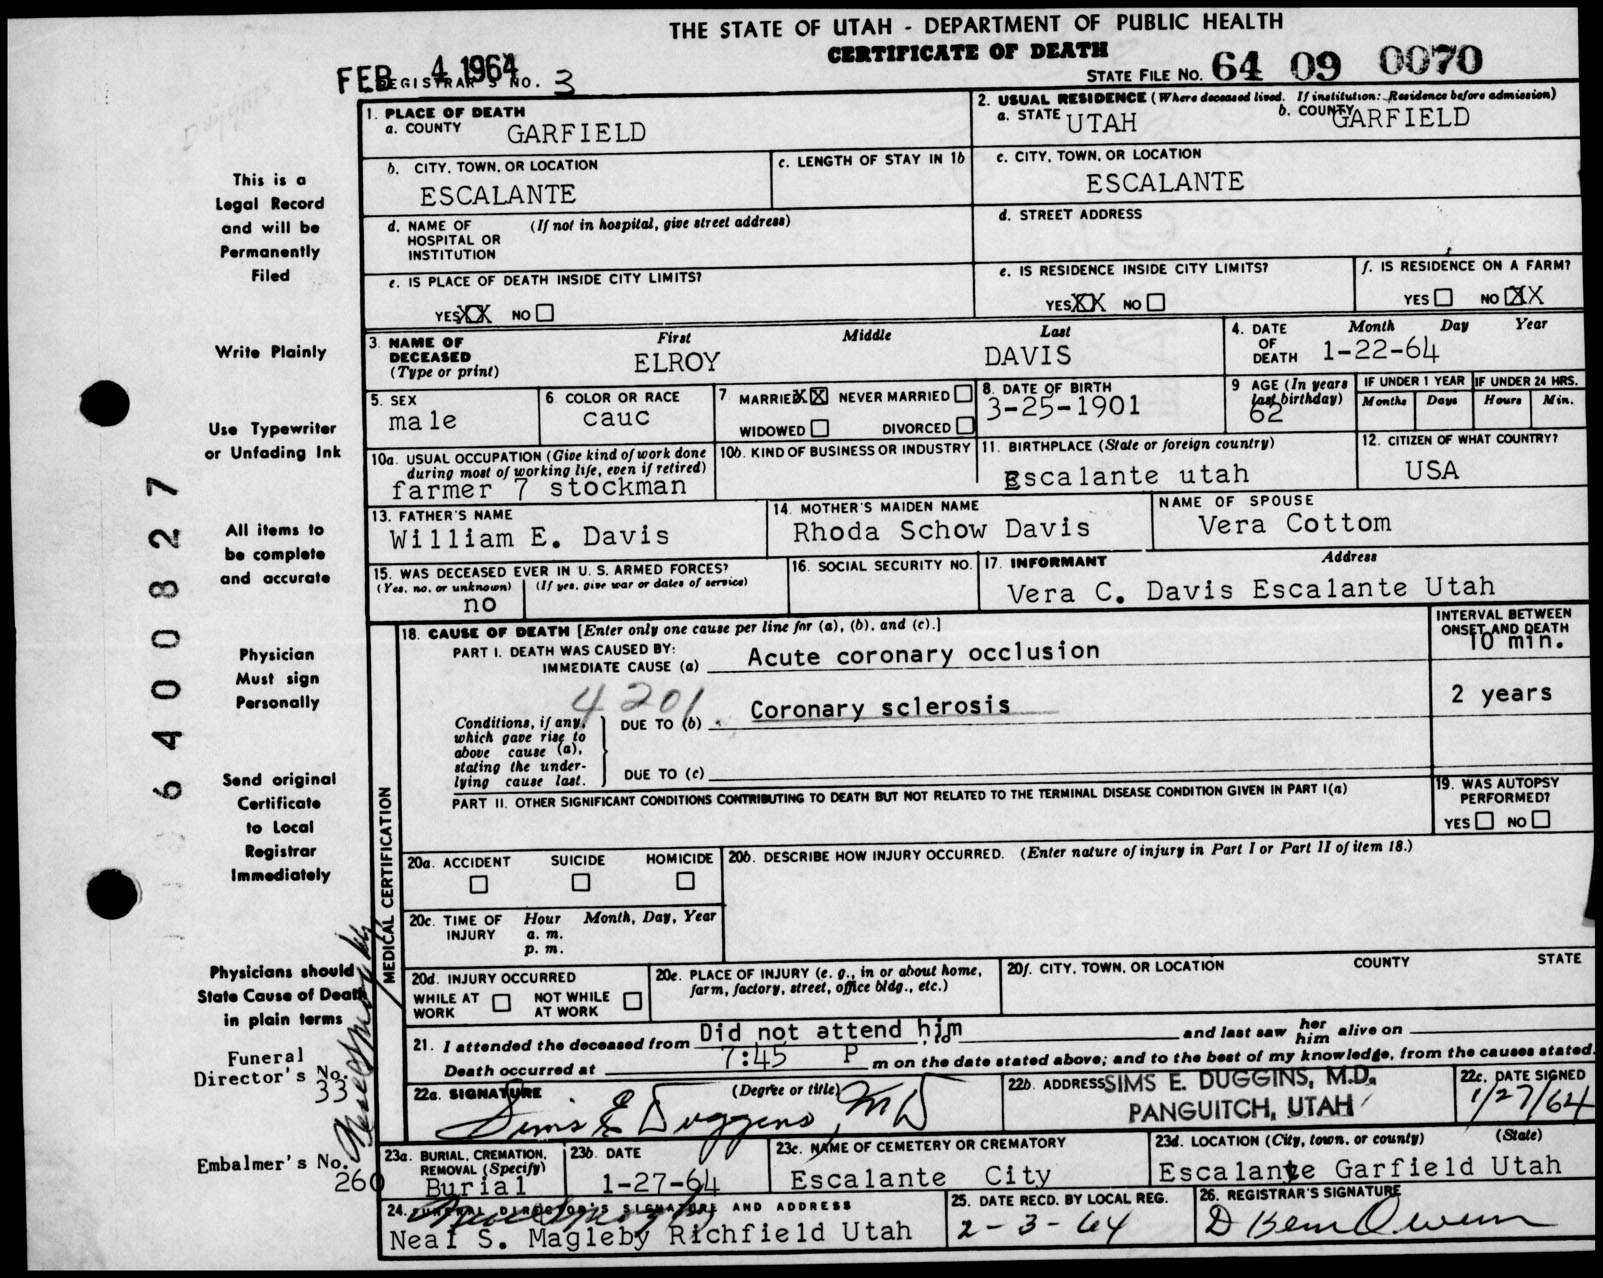 THE STATE OF UTAH - DEPARTMENT OF PUBLIC HEALTH
CERTIFICATE OF DEATH
FEB 4 1964
REGISTRAR'S NO. 3
STATE FILE NO. 64 09 0070
1. PLACE OF DEATH
a. COUNTY GARFIELD
2. USUAL RESIDENCE (Where deceased lived. If institution: Residence before admission)
a. STATE UTAH b. COUNTY GARFIELD
b. CITY, TOWN, OR LOCATION
ESCALANTE
c. LENGTH OF STAY IN 1b
c. CITY, TOWN, OR LOCATION
ESCALANTE
d. NAME OF HOSPITAL OR INSTITUTION (If not in hospital, give street address)
d. STREET ADDRESS
e. IS PLACE OF DEATH INSIDE CITY LIMITS?
YES XX NO
e. IS RESIDENCE INSIDE CITY LIMITS?
YES XX NO
f. IS RESIDENCE ON A FARM?
YES NO XX
3. NAME OF DECEASED (Type or print)
First Middle Last
ELROY DAVIS
4. DATE OF DEATH Month Day Year
1-22-64
5. SEX
male
6. COLOR OR RACE
cauc
7 MARRIED X NEVER MARRIED
WIDOWED DIVORCED
8. DATE OF BIRTH
3-25-1901
9 AGE (In years last birthday)
62
IF UNDER 1 YEAR
Months Days
IF UNDER 24 HRS.
Hours Min.
10a. USUAL OCCUPATION (Give kind of work done during most of working life, even if retired)
farmer 7 stockman
10b. KIND OF BUSINESS OR INDUSTRY
11. BIRTHPLACE (State or foreign country)
Escalante utah
12. CITIZEN OF WHAT COUNTRY?
USA
13. FATHER'S NAME
William E. Davis
14. MOTHER'S MAIDEN NAME
Rhoda Schow Davis
NAME OF SPOUSE
Vera Cottom
15. WAS DECEASED EVER IN U. S. ARMED FORCES?
(Yes, no, or unknown) (If yes, give war or dates of service)
no
16. SOCIAL SECURITY NO.
17. INFORMANT Address
Vera C. Davis Escalante Utah
MEDICAL CERTIFICATION
18. CAUSE OF DEATH [Enter only one cause per line for (a), (b), and (c).]
INTERVAL BETWEEN ONSET AND DEATH
PART I. DEATH WAS CAUSED BY:
IMMEDIATE CAUSE (a) Acute coronary occlusion
10 min.
4201
Conditions, if any, which gave rise to above cause (a), stating the underlying cause last.
DUE TO (b) Coronary sclerosis
2 years
DUE TO (c)
PART II. OTHER SIGNIFICANT CONDITIONS CONTRIBUTING TO DEATH BUT NOT RELATED TO THE TERMINAL DISEASE CONDITION GIVEN IN PART I(a)
19. WAS AUTOPSY PERFORMED?
YES NO
20a. ACCIDENT SUICIDE HOMICIDE
20b. DESCRIBE HOW INJURY OCCURRED. (Enter nature of injury in Part I or Part II of item 18.)
20c. TIME OF INJURY Hour Month, Day, Year
a. m.
p. m.
20d. INJURY OCCURRED
WHILE AT WORK NOT WHILE AT WORK
20e. PLACE OF INJURY (e. g., in or about home, farm, factory, street, office bldg., etc.)
20f. CITY, TOWN, OR LOCATION COUNTY STATE
21. I attended the deceased from Did not attend him to and last saw her him alive on
Death occurred at 7:45 P m on the date stated above; and to the best of my knowledge, from the causes stated.
22a. SIGNATURE (Degree or title)
Sims E Duggins, MD
22b. ADDRESS SIMS E. DUGGINS, M.D.
PANGUITCH, UTAH
22c. DATE SIGNED
1/27/64
23a. BURIAL, CREMATION, REMOVAL (Specify)
Burial
23b. DATE
1-27-64
23c. NAME OF CEMETERY OR CREMATORY
Escalante City
23d. LOCATION (City, town, or county) (State)
Escalante Garfield Utah
24. FUNERAL DIRECTOR'S SIGNATURE AND ADDRESS
Neal S. Magleby Richfield Utah
25. DATE RECD. BY LOCAL REG.
2-3-64
26. REGISTRAR'S SIGNATURE
This is a
Legal Record
and will be
Permanently
Filed
Write Plainly
Use Typewriter
or Unfading Ink
All items to
be complete
and accurate
Physician
Must sign
Personally
Send original
Certificate
to Local
Registrar
Immediately
Physicians should
State Cause of Death
in plain terms
Funeral
Director's No.
33
Neal S Magleby
Embalmer's No.
260
6400827